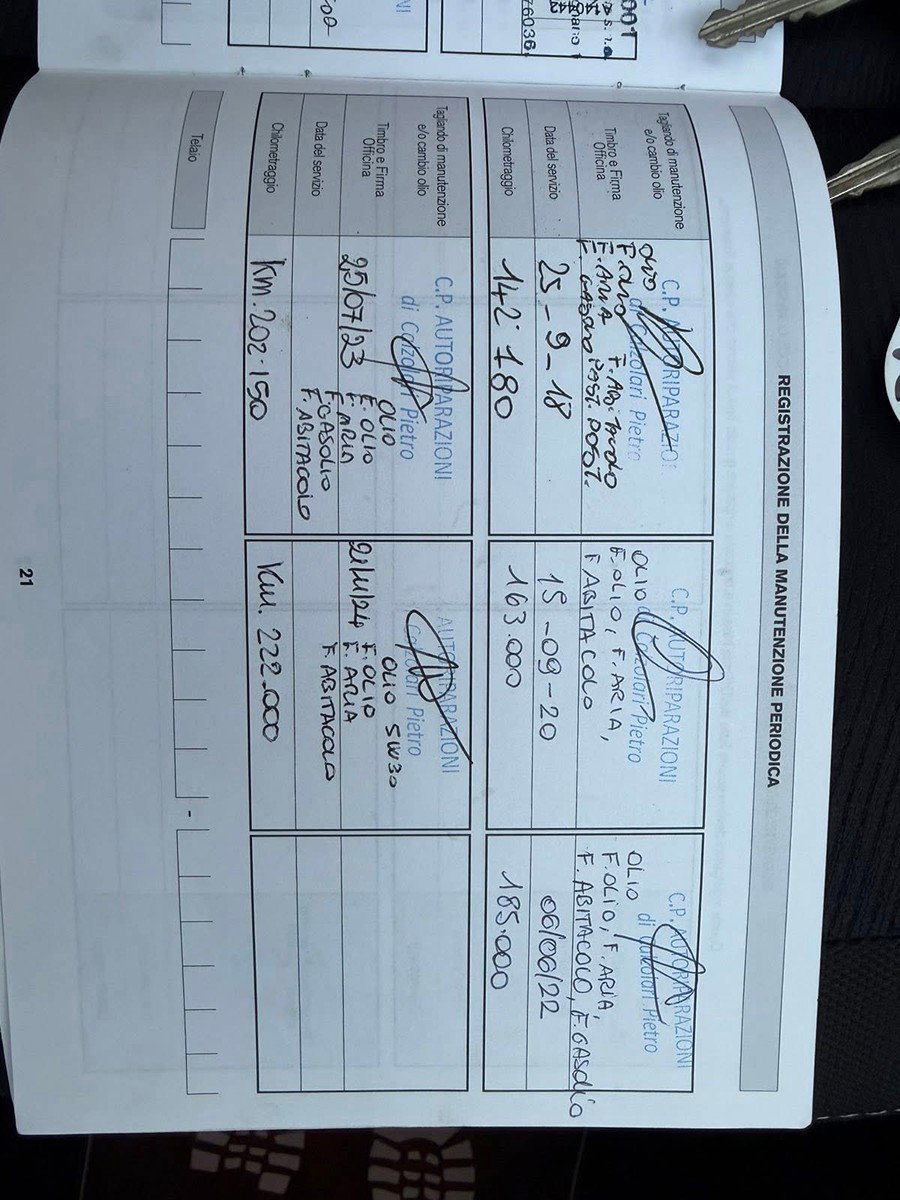 REGISTRAZIONE DELLA MANUTENZIONE PERIODICA
Tagliando di manutenzione
e/o cambio olio
Timbro e Firma
Officina
Data del servizio
Chilometraggio
C.P. AUTORIPARAZIO
di Calzolari Pietro
OLIO
F. OLIO
F. ARIA F. AB.
F. GASOLIO POST. POST.
25-9-18
142.780
C.P. AUTORIPARAZIONI
di Calzolari Pietro
OLIO
F. OLIO, F. ARIA,
F. ABITACOLO
15-09-20
163.000
C.P. AUTORIPARAZIONI
di Calzolari Pietro
OLIO
F. OLIO, F. ARIA,
F. ABITACOLO, F. GASOLIO
06/06/22
185.000
Tagliando di manutenzione
e/o cambio olio
Timbro e Firma
Officina
Data del servizio
Chilometraggio
C.P. AUTORIPARAZIONI
di Calzolari Pietro
OLIO
F. OLIO
25/07/23 F. ARIA
F. GASOLIO
F. ABITACOLO
KM. 202.150
AUTORIPARAZIONI
Calzolari Pietro
OLIO 5W30
F. OLIO
21/11/24 F. ARIA
F. ABITACOLO
KM. 222.000
Telaio
-
21